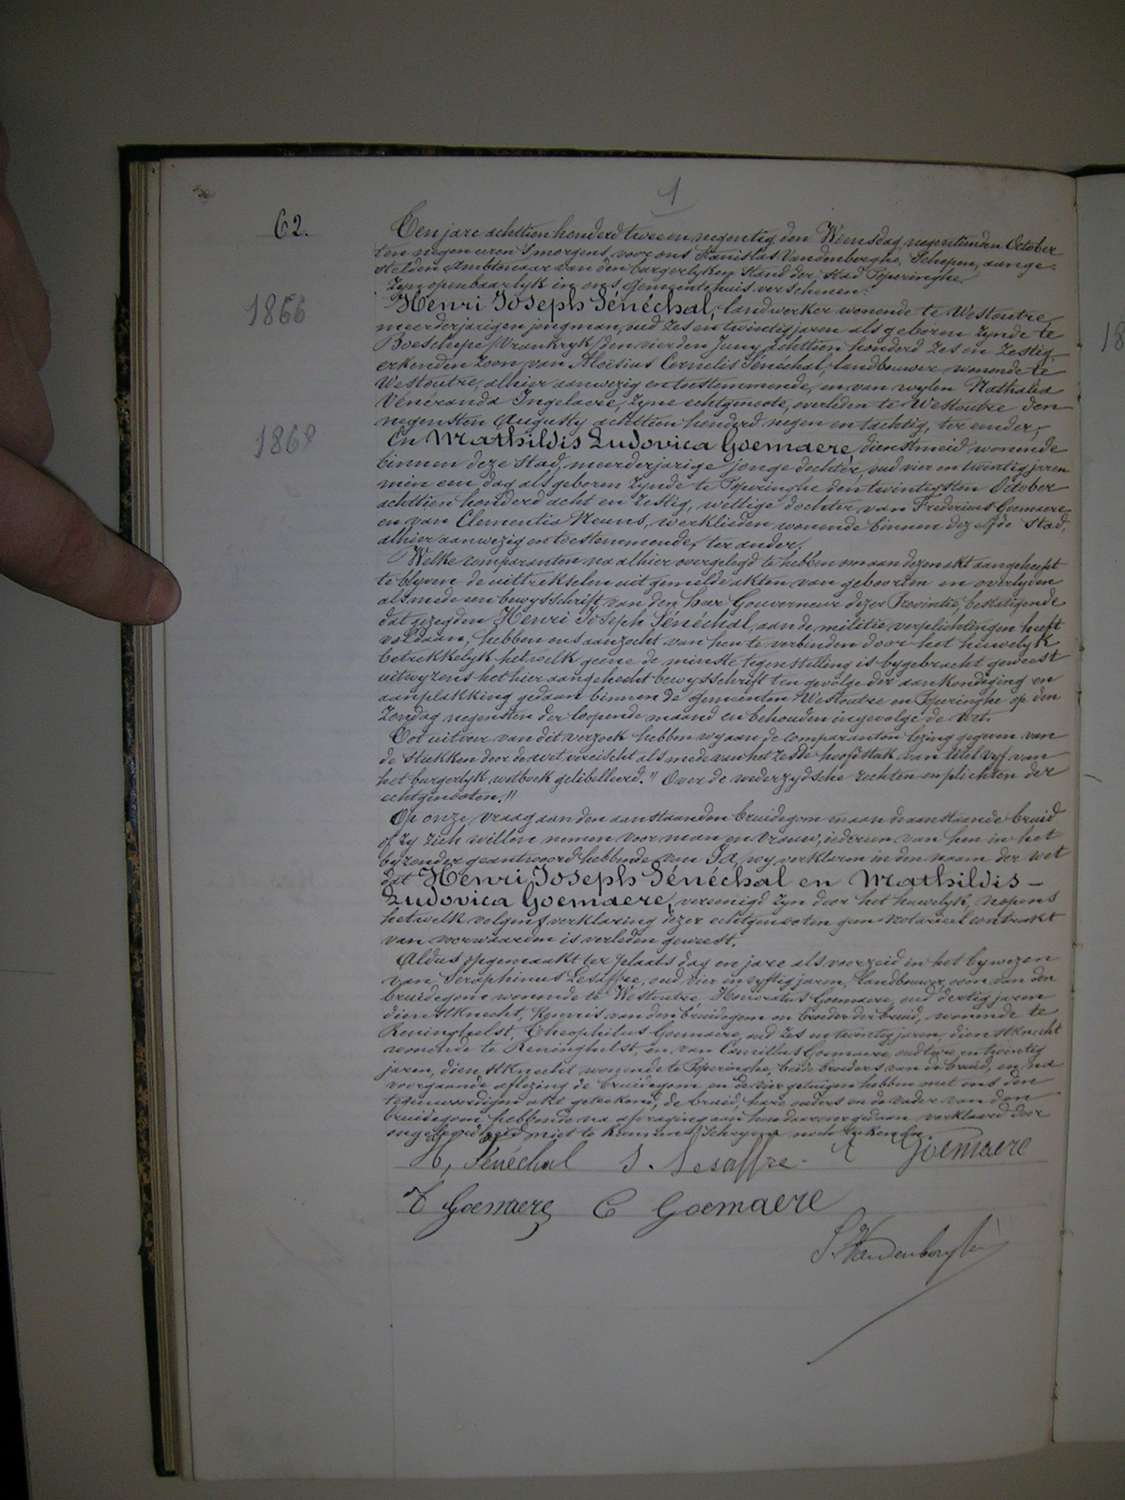 1
62.
Een jare achttien honderd twee en negentig den Woensdag negentienden October
ten negen uren 's morgens, voor ons Stanislas Vandenberghe, Schepen, aange-
stelden Ambtenaar van den burgerlyken Stand der Stad Poperinghe
Zyn openbaarlyk in ons Gemeentehuis verschenen:
Henri Joseph Sénéchal, landwerker wonende te Westoutre,
1866
meerderjarigen jongman, oud zes en twintig jaren als geboren zynde te
Boeschepe (Vrankryk) den vierden Juny achttien honderd zes en zestig
erkenden zoon van Aloïsius Cornelis Sénéchal, landbouwer wonende te
Westoutre, alhier aanwezig en toestemmende, en van wylen Nathalia
Vénéranda Ingelaere, zyne echtgenoote, overleden te Westoutre den
negensten Augusty achttien honderd negen en tachtig, ter eender,
1868
En Mathildis Ludovica Goemaere, dienstmeid wonende
binnen deze stad, meerderjarige jonge dochter, oud vier en twintig jaren
min een dag als geboren zynde te Poperinghe den twintigsten October
achttien honderd acht en zestig, wettige dochter van Fredericus Goemaere
en van Clementia Neuns, werklieden, wonende binnen dezelfde Stad,
alhier aanwezig en toestemmende, ter ander,
Welke comparanten na alhier overgelegd te hebben om aan dezen akt aangehecht
te blyven de uittrekselen uit gemelde akten van geboorten en overlyden
alsmede een bewysschrift van den heer Gouverneur dezer Provintie, bestatigende
dat gezegden Henri Joseph Sénéchal, aan de militie verplichtingen heeft
voldaan, hebben ons aanzocht van hen te verbinden door het huwelyk
betrekkelyk hetwelk geene de minste tegenstelling is bygebracht geweest
uitwyzens het hier aangehecht bewysschrift ten gevolge der aankondiging en
aanplakking gedaan binnen de Gemeenten Westoutre en Poperinghe op den
Zondag negensten der loopende maand en behouden ingevolge de Wet.
Tot uitvoer van dit verzoek hebben wy aan de comparanten lezing gegeven van
de stukken door de wet vereischt alsmede van het zesde hoofdstuk van titel vyf van
het burgerlyk wetboek gelibelleerd: "Over de wederzydsche rechten en plichten der
echtgenooten."
Op onze vraag aan den aanstaanden bruidegom en aan de aanstaande bruid
of zy zich willen nemen voor man en vrouw, iedereen van hen in het
byzonder geantwoord hebbende van Ja, wy verklaren in den naam der wet
dat Henri Joseph Sénéchal en Mathildis-
Ludovica Goemaere, vereenigd zyn door het huwelyk, nopens
hetwelk volgens verklaring dezer echtgenooten geen notarieel contrakt
van voorwaarden is verleden geweest.
Aldus opgemaakt ter plaats dag en jare als voorzeid in het bywezen
van Seraphinus Lesaffre, oud vier en vyftig jaren, landbouwer, oom van den
bruidegom wonende te Westoutre, Honoratus Goemaere, oud dertig jaren
dienstknecht, kennis van den bruidegom en broeder der bruid, wonende te
Reninghelst, Theophilus Goemaere, oud zes en twintig jaren, dienstknecht
wonende te Reninghelst, en van Camillus Goemaere oud twee en twintig
jaren, dienstknecht wonende te Poperinghe, beide broeders van de bruid, en na
voorgaande aflezing de bruidegom en de vier getuigen hebben met ons den
tegenwoordigen akt geteekend, de bruid, hare ouders en de vader van den
bruidegom hebbende na afvraging aan hen daarover gedaan verklaard door
ongeleerdheid niet te kunnen schryven noch teekenen.
H, Sénéchal S. Lesaffre Goemaere
T Goemaere C Goemaere
S. Vandenberghe
18